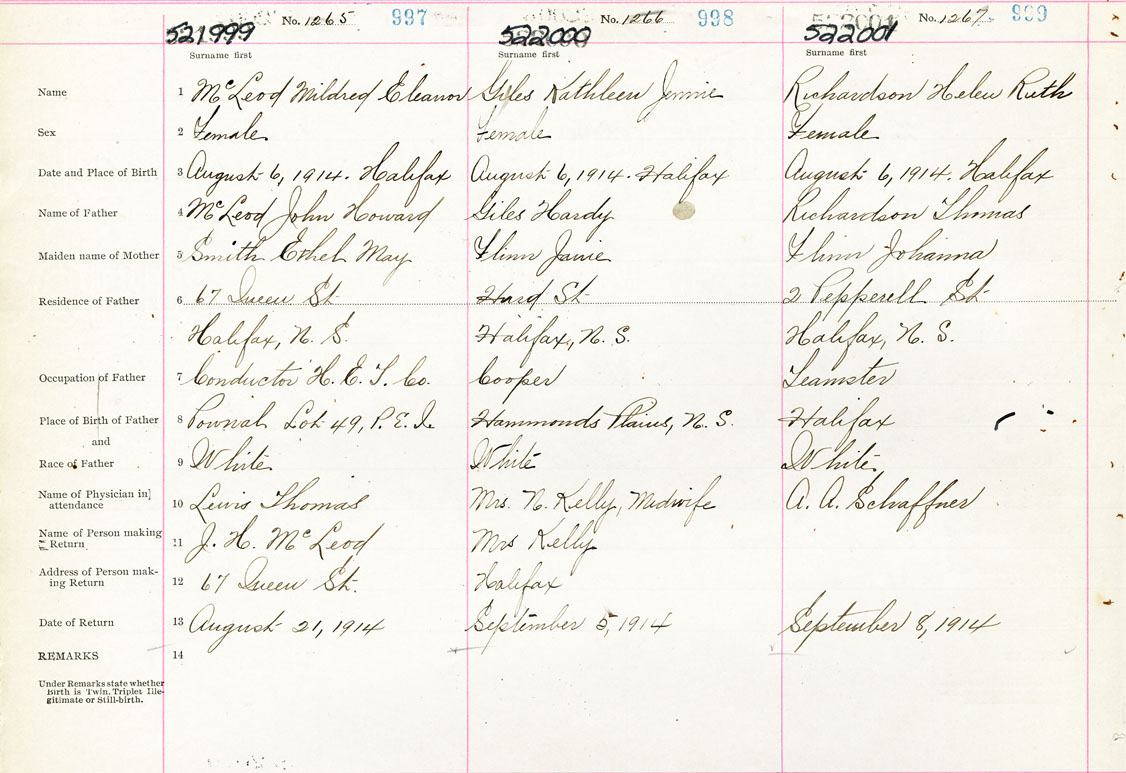 No. 1265 997 No. 1266 998 No. 1267 999
521999 522000 522001
Surname first Surname first Surname first
Name 1 McLeod Mildred Eleanor Giles Kathleen Jennie Richardson Helen Ruth
Sex 2 Female Female Female
Date and Place of Birth 3 August 6, 1914. Halifax August 6, 1914. Halifax August 6, 1914. Halifax
Name of Father 4 McLeod John Howard Giles Hardy Richardson Thomas
Maiden name of Mother 5 Smith Ethel May Flinn Janie Flinn Johanna
Residence of Father 6 67 Queen St. St. 2 Pepperell St
Halifax, N. S. Halifax, N. S. Halifax, N. S.
Occupation of Father 7 Conductor H. E. T. Co. Cooper Teamster
Place of Birth of Father 8 Pownal Lot 49, P. E. I. Hammonds Plains, N. S. Halifax
and
Race of Father 9 White White White
Name of Physician in
attendance 10 Lewis Thomas Mrs. N. Kelly, Midwife A. A. Schaffner
Name of Person making
Return 11 J. H. McLeod Mrs Kelly
Address of Person mak-
ing Return 12 67 Queen St. Halifax
Date of Return 13 August 21, 1914 September 5, 1914 September 8, 1914
REMARKS 14
Under Remarks state whether
Birth is Twin, Triplet Ille-
gitimate or Still-birth.